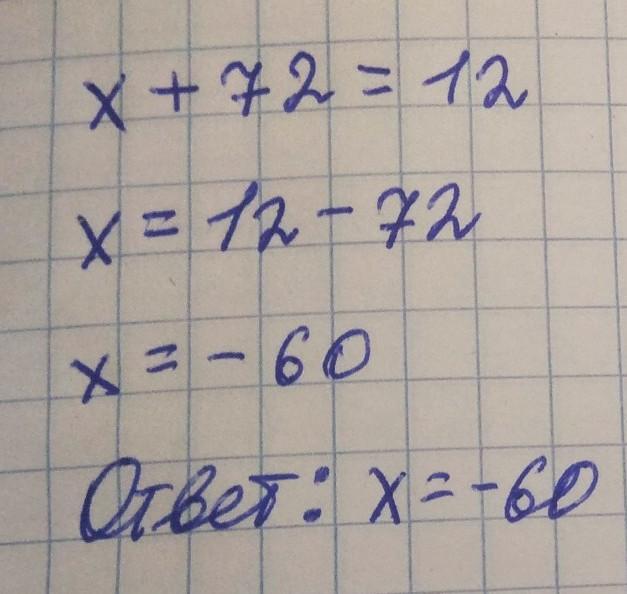 x + 72 = 12
x = 12 - 72
x = - 60
Ответ: x = -60